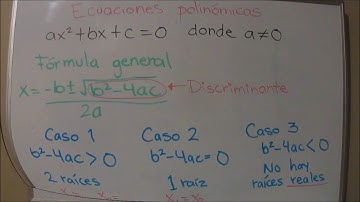 Ecuaciones polinómicas
ax²+bx+c=0 donde a≠0
Fórmula general
x=-b±√b²-4ac ← Discriminante
2a
Caso 1
b²-4ac>0
2 raíces
Caso 2
b²-4ac=0
1 raíz
Caso 3
b²-4ac<0
No hay
raíces reales